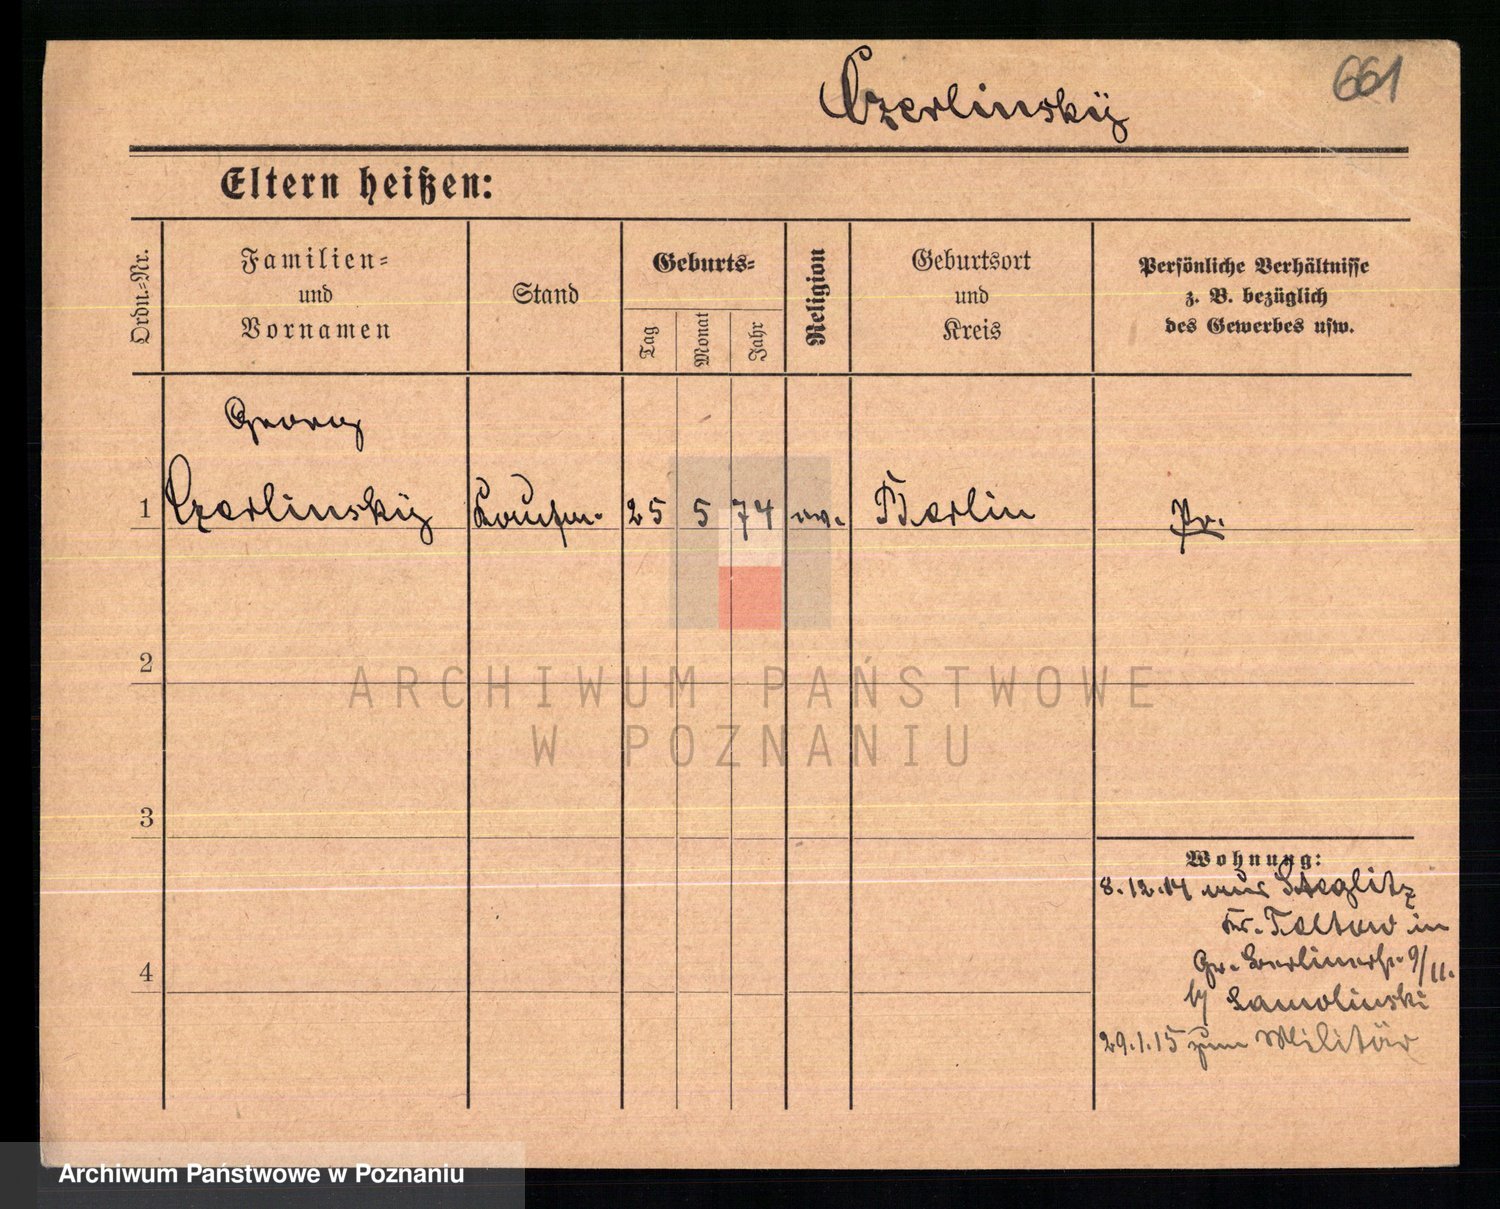 Czerlinsky
661
Eltern heißen:
Ordn.-Nr.
Familien-
und
Vornamen
Stand
Geburts-
Tag
Monat
Jahr
Religion
Geburtsort
und
Kreis
Persönliche Verhältnisse
z. B. bezüglich
des Gewerbes usw.
Georg
1 Czerlinsky Kaufm. 25 5 74 ev. Berlin Pr.
2
3
4
Wohnung:
8.12.14 aus Steglitz
Kr. Teltow in
Gr. Berlinerstr. 9/11.
by Samolinski
29.1.15 zum Militär
ARCHIWUM PAŃSTWOWE
W POZNANIU
Archiwum Państwowe w Poznaniu